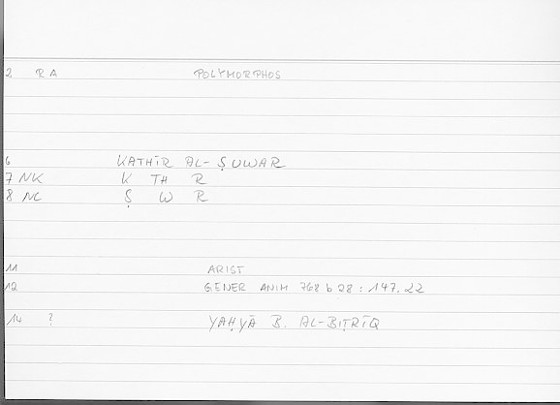 2 RA POLYMORPHOS
6 KATHĪR AL-ṢUWAR
7 NK K TH R
8 NC Ṣ W R
11 ARIST
12 GENER ANIM 768 b 28 : 147.22
14 ? YAḤYĀ B. AL-BIṬRĪQ